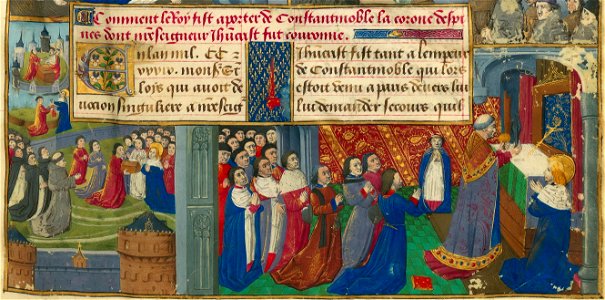 Comment le Roy fist aporter de Constantinoble la corone despi
nes dont nr̃eseigneur Jhũcrist fut couronne.
En lan mil. CC.
lois qui auoit de
uocion singuliere a nr̃eseigr̃
Jhũcrist fist tant a lempeur
de Constantinoble qui lors
estoit venu a paris deuers lui
lui demander secours quil